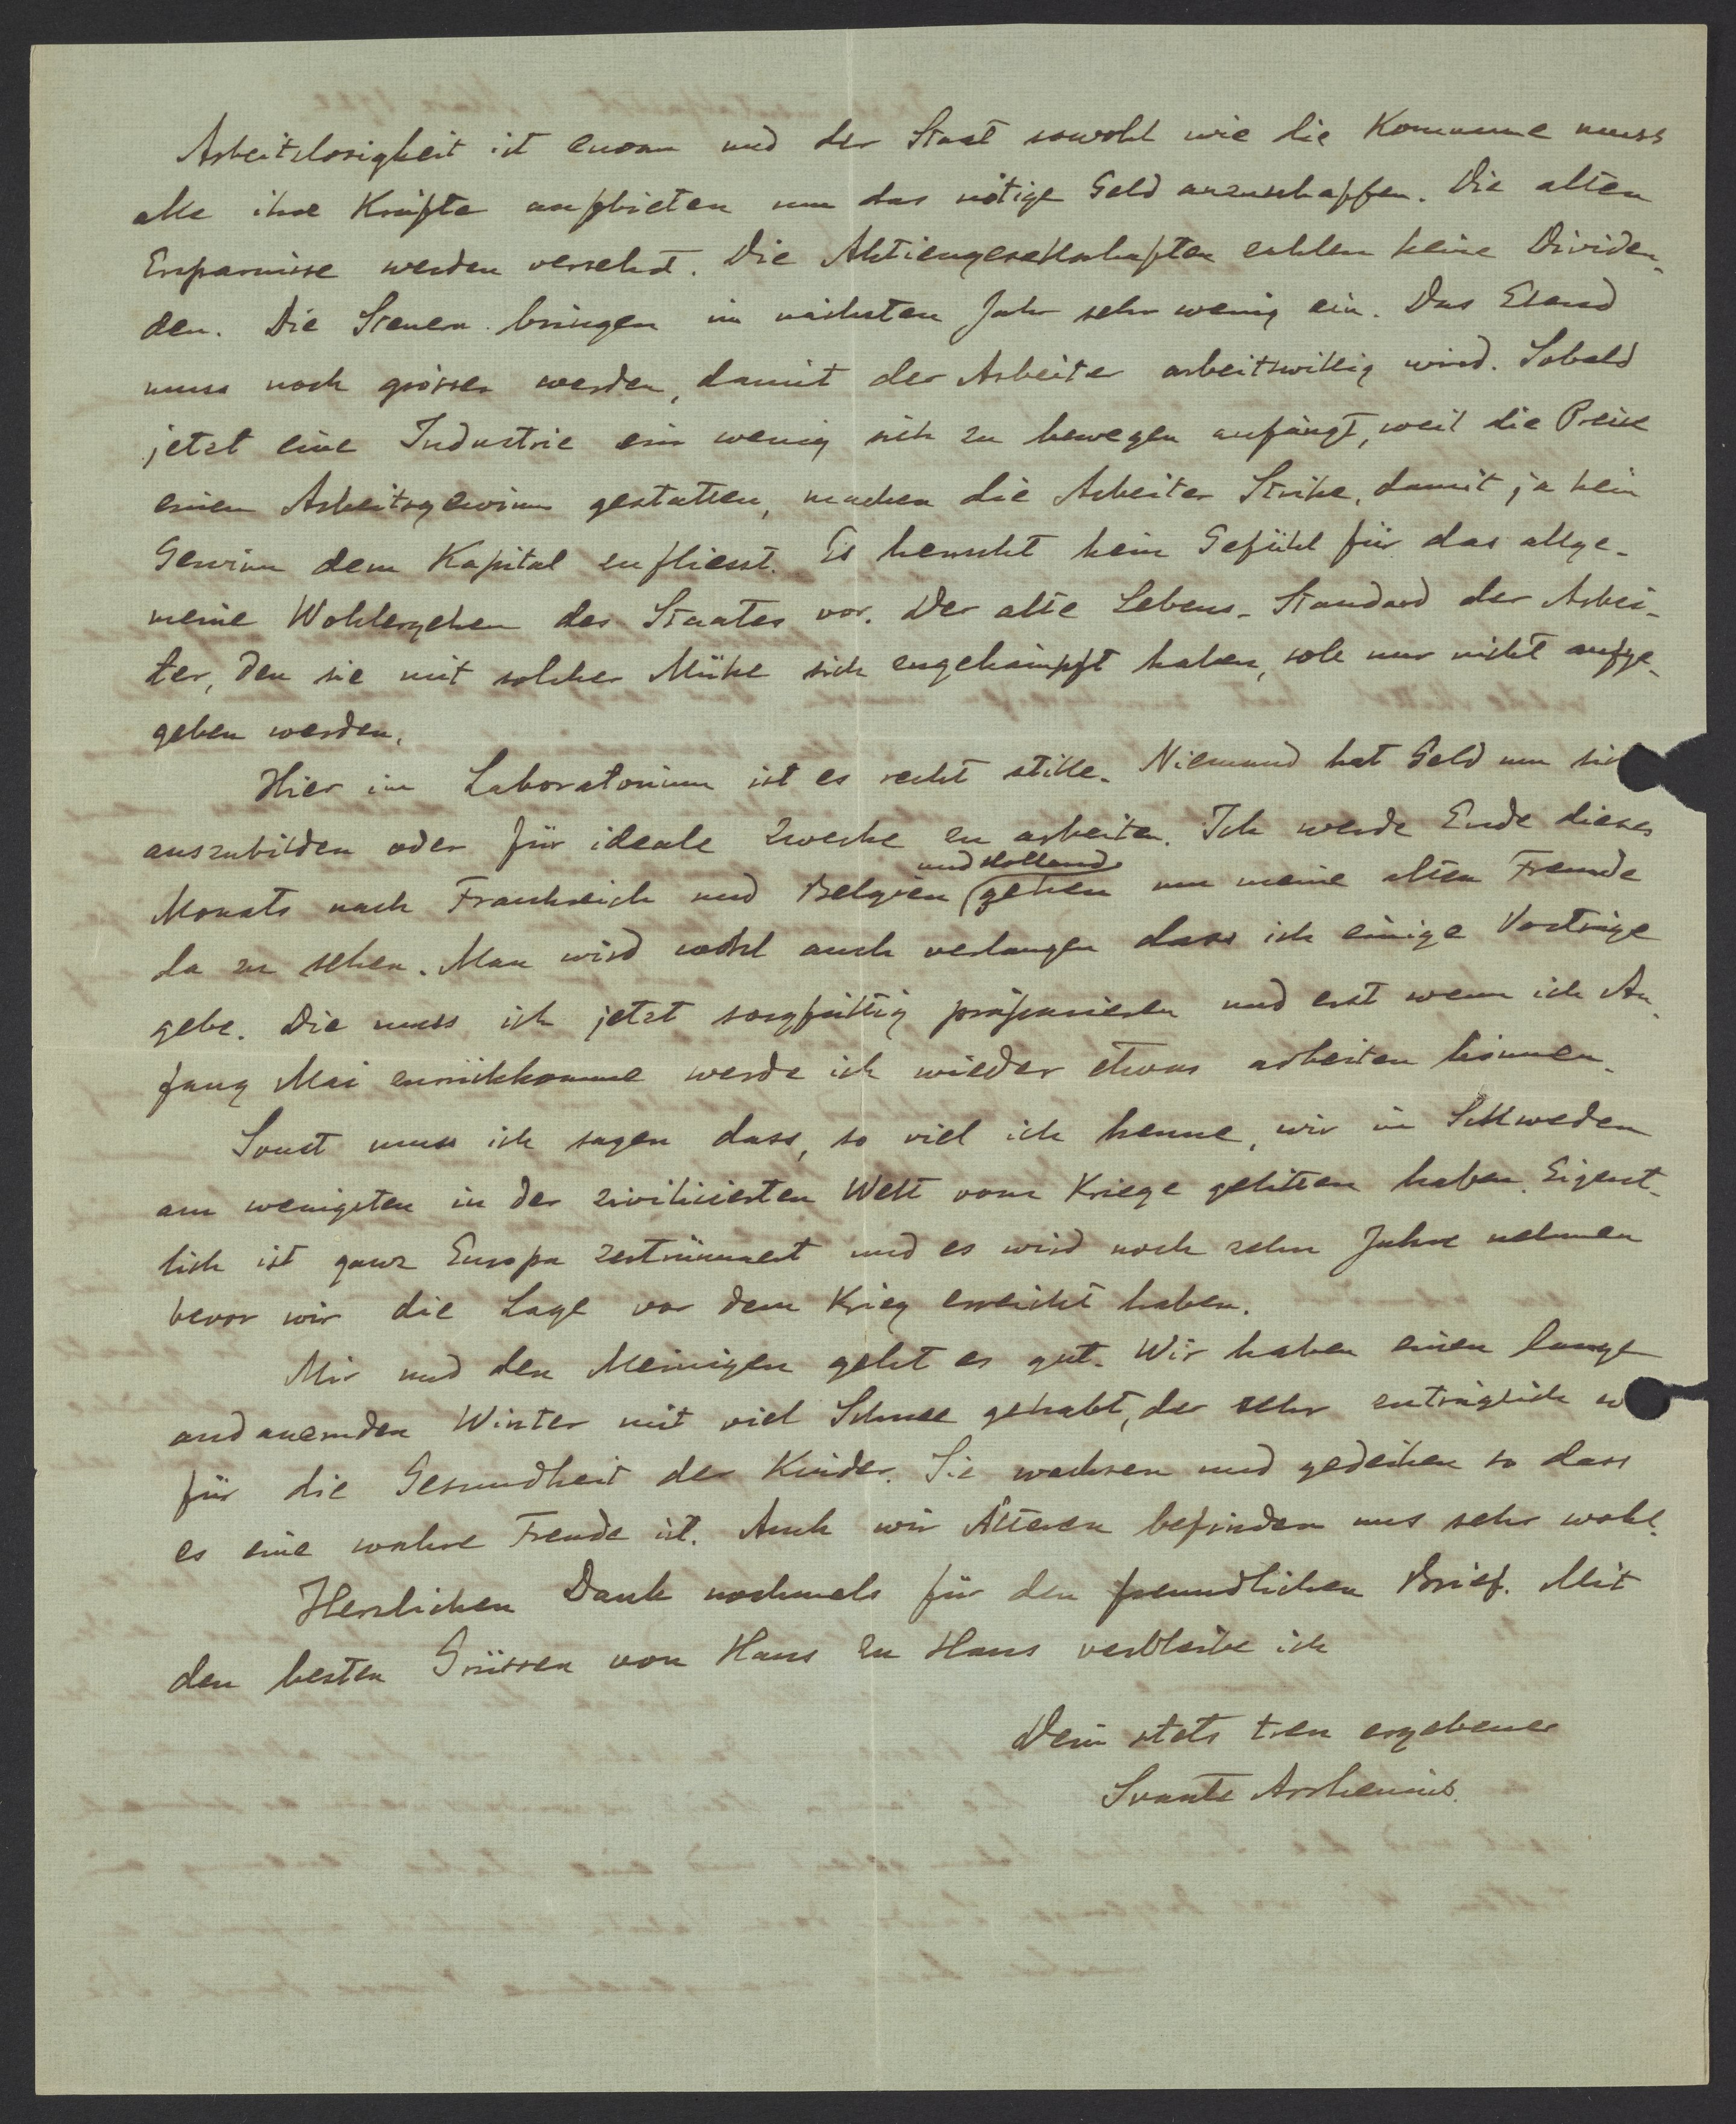 Arbeitslosigkeit ist enorm und der Staat sowohl wie die Kommune muss
alle ihre Kräfte aufbieten um das nötige Geld anzuschaffen. Die alten
Ersparnisse werden verzehrt. Die Aktiengesellschaften zahlen keine Dividen-
den. Die Steuern bringen im nächsten Jahr sehr wenig ein. Das Elend
muss noch grösser werden, damit der Arbeiter arbeitswillig wird. Sobald
jetzt eine Industrie ein wenig sich zu bewegen anfängt, weil die Preise
einen Arbeitsgewinn gestatten, machen die Arbeiter Strike, damit ja kein
Gewinn dem Kapital zufliesst. Es herrscht kein Gefühl für das allge-
meine Wohlergehen des Staates vor. Der alte Lebens-Standard der Arbei-
ter, den sie mit solcher Mühe sich zugekämpft haben, soll nur nicht aufge-
geben werden.
Hier im Laboratorium ist es recht stille. Niemand hat Geld um
auszubilden oder für ideale Zwecke zu arbeiten. Ich werde Ende dieses
und Holland
Monats nach Frankreich und Belgien gehen um meine alten Freunde
da zu sehen. Man wird wohl auch verlangen dass ich einige Vorträge
gebe. Die muss ich jetzt sorgfältig präparieren und erst wenn ich An-
fang Mai zurückkomme werde ich wieder etwas arbeiten können.
Sonst muss ich sagen dass, so viel ich kenne, wir in Schweden
am wenigsten in der zivilisierten Welt vom Kriege gelitten haben. Eigent-
lich ist ganz Europa zertrümmert und es wird noch zehn Jahre nehmen
bevor wir die Lage vor dem Krieg erreicht haben.
Mir und den Meinigen geht es gut. Wir haben einen lange
andauernden Winter mit viel Schnee gehabt, der sehr zuträglich
für die Gesundheit der Kinder. Sie wachsen und gedeihen so dass
es eine wahre Freude ist. Auch wir Älteren befinden uns sehr wohl.
Herzlichen Dank nochmals für den freundlichen Brief. Mit
den besten Grüssen von Haus zu Haus verbleibe ich
Dein stets treu ergebener
Svante Arrhenius.